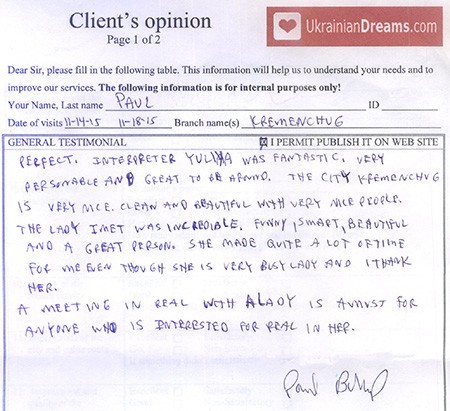 Client's opinion
Page 1 of 2
UkrainianDreams.com
Dear Sir, please fill in the following table. This information will help us to understand your needs and to
improve our services. The following information is for internal purposes only!
Your Name, Last name PAUL ID
Date of visits 11-14-15 11-18-15 Branch name(s) KREMENCHUG
GENERAL TESTIMONIAL I PERMIT PUBLISH IT ON WEB SITE
PERFECT. INTERPRETER YULIYA WAS FANTASTIC, VERY
PERSONABLE AND GREAT TO BE AROUND. THE CITY KREMENCHUG
IS VERY NICE. CLEAN AND BEAUTIFUL WITH VERY NICE PEOPLE.
THE LADY I MET WAS INCREDIBLE. FUNNY, SMART, BEAUTIFUL
AND A GREAT PERSON. SHE MADE QUITE A LOT OF TIME
FOR ME EVEN THOUGH SHE IS VERY BUSY LADY AND I THANK
HER.
A MEETING IN REAL WITH A LADY IS A MUST FOR
ANYONE WHO IS INTERESTED FOR REAL IN HER.
Paul